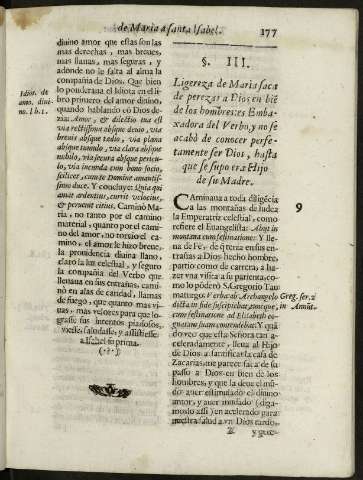 de Maria a santa Isabel.
177
diuino amor que estas son las
mas derechas, mas breues,
mas llanas, mas seguras, y
adonde no le falta al alma la
compañia de Dios. Que bien
lo ponderaua el Idiota en el li-
bro primero del amor diuino,
quando hablando cõ Dios de-
zia: Amor, & dilectio tua est
via rectissima absque deuio, via
breuis absque tædio, via plana
absque tumulo, via clara absque
nubilo, via secura absque pericu-
lo, via iucunda cum bono socio,
scilicet, cum te Domine amantis-
simo duce. Y concluye: Quia qui
amat ardentius, currit velocius,
& peruenit citius. Caminò Ma-
ria, no tanto por el camino
material, quanto por el cami-
no del amor, no torciò el ca-
mino, el amor le hizo breue,
la prouidencia diuina llano,
claro la luz celestial, y seguro
la compañia del Verbo que
lleuaua en sus entrañas, cami-
nò en alas de caridad, llamas
de fuego, que quanto mas vi-
uas, mas velores para que lo-
grasse sus intentos piadosos,
viesse, saludasse, y assistiesse
a Isabel su prima.
(.?.)
Idiot. de
amo. diui-
no. l. b. 1.
§. III.
Ligereza de Maria saca
de pereza a Dios en biẽ
de los hombres: es Emba-
xadora del Verbo, y no se
acabò de conocer perfe-
tamente ser Dios, hasta
que se supo era Hijo
de su Madre.
CAminaua a toda diligẽcia
a las montañas de Iudea
la Emperatriz celestial, como
refiere el Euangelista: Abijt in
montana cum festinatione: Y lle-
na de Fè, de q̃ tenia en sus en-
trañas a Dios hecho hombre,
partio como de carrera, a ha-
zer vna visita a su parienta, co-
mo lo põderò S. Gregorio Tau
maturgo: Verba ab Archangelo
dicta in fide suscipiebat, eamque, in
montana cum festinatione ad Elisabeth co-
gnatam suam contendebat. Y quã
do veo que esta Señora tan a-
celeradamente, lleua al Hijo
de Dios a santificar la casa de
Zacarias, me parece saca de su
passo a Dios en bien de los
hombres, y que la deue el mũ-
do auer estimulado el diuino
amor, y auer mudado (diga-
moslo assi) en acelerado para
nuestra salud a vn Dios tardo,
9
Greg. ser. 2
in Anũt.
Z
y que